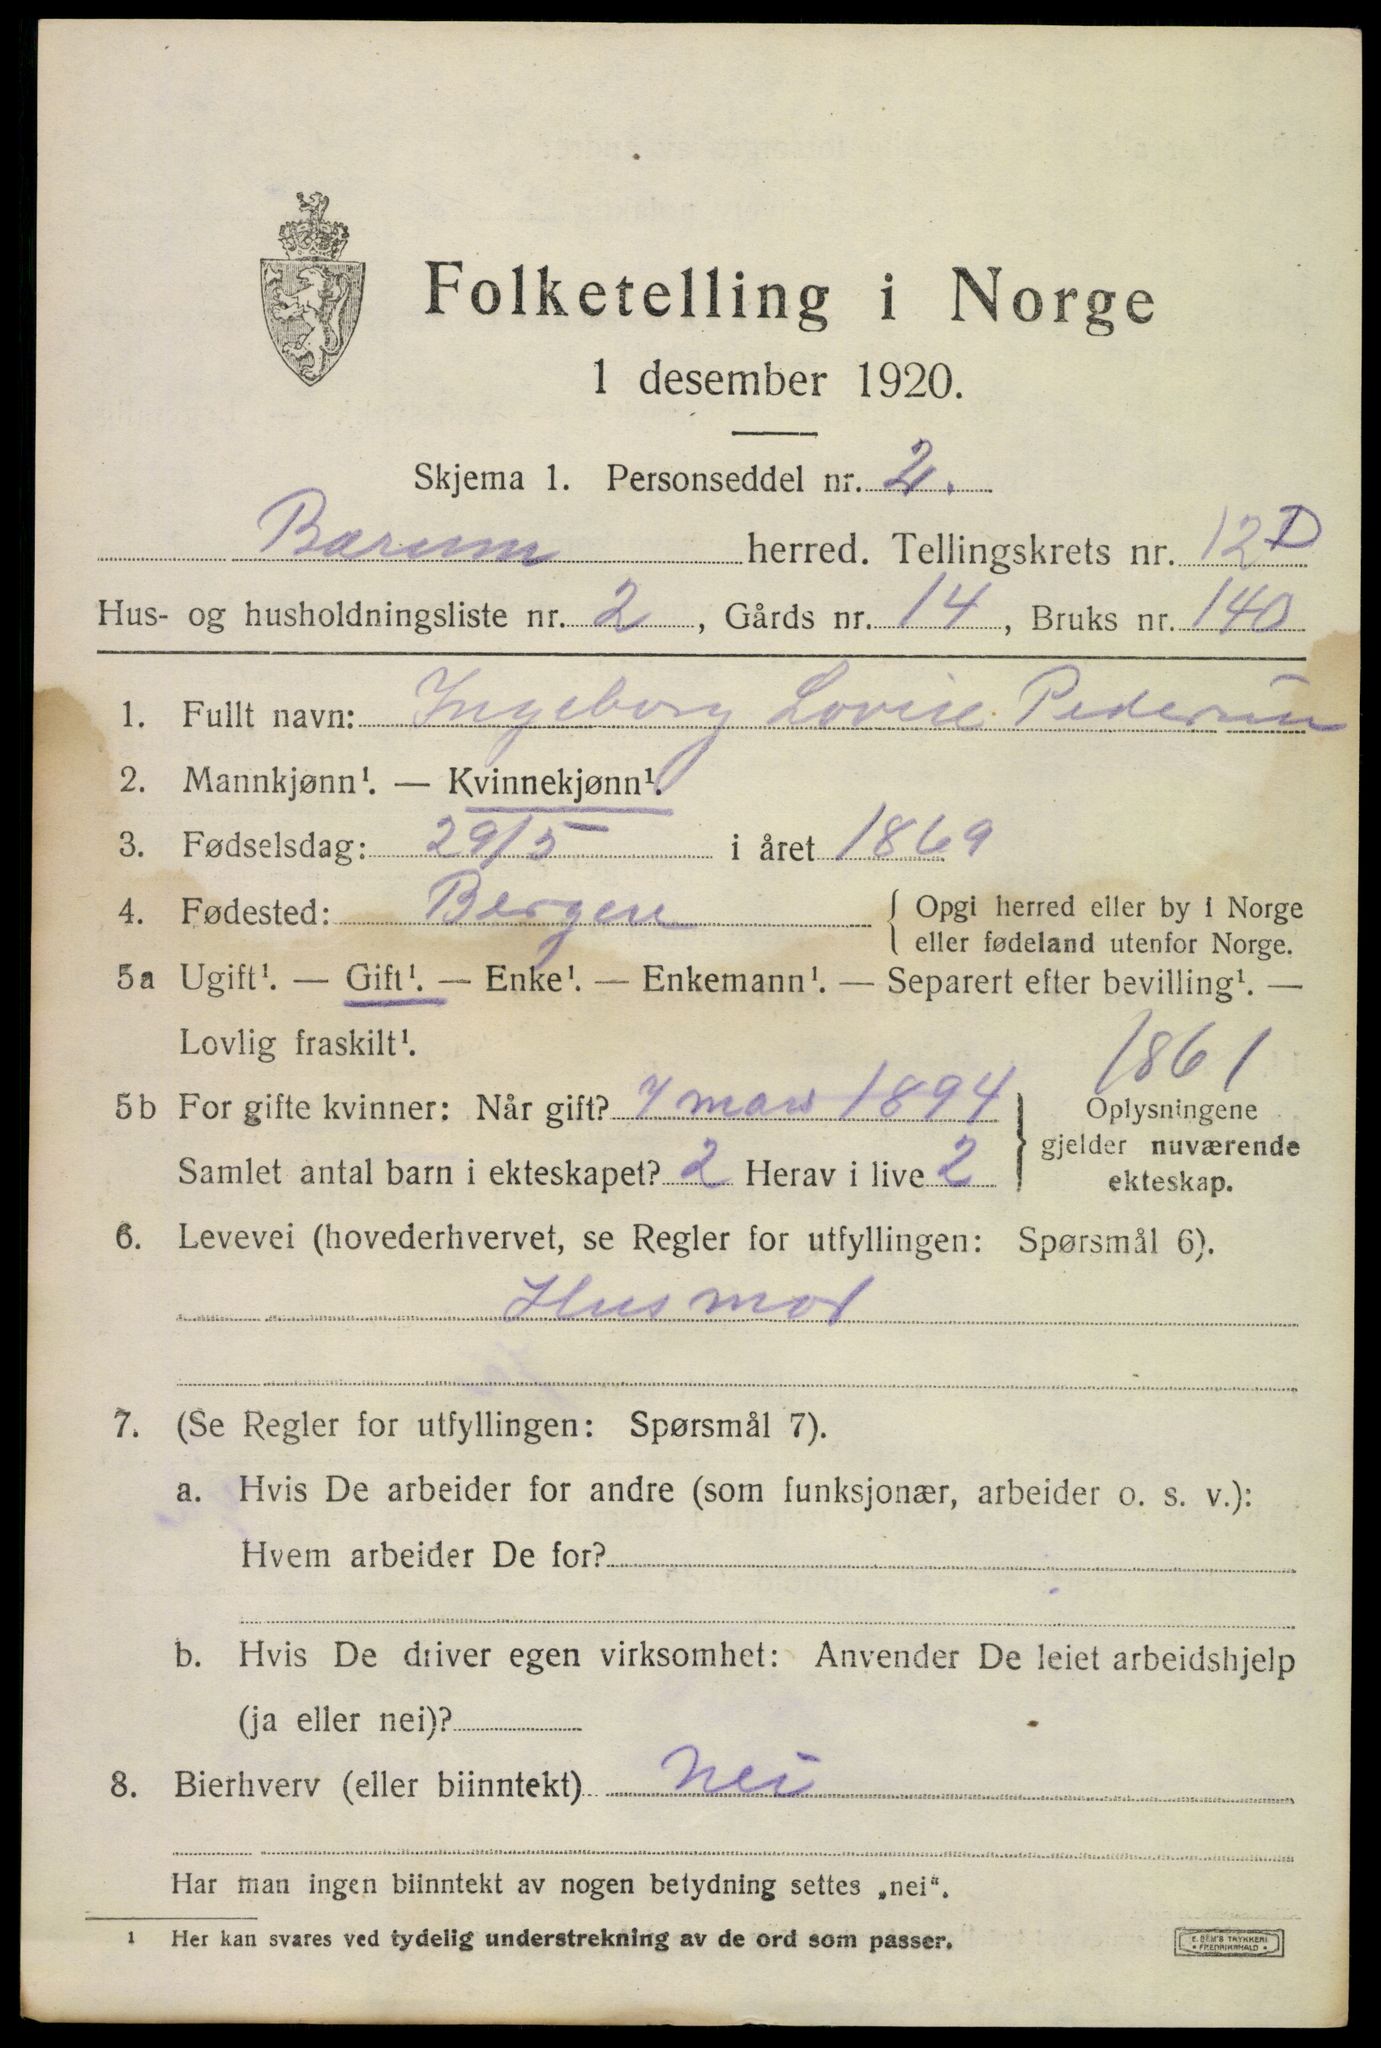 Folketelling i Norge
1 desember 1920.
Skjema 1. Personseddel nr. 2.
Bærum herred. Tellingskrets nr. 12 D
Hus- og husholdningsliste nr. 2, Gårds nr. 14, Bruks nr. 140
1. Fullt navn: Ingeborg Lovise Pedersen
2. Mannkjønn¹. — Kvinnekjønn¹.
3. Fødselsdag: 29/5 i året 1869
4. Fødested: Bergen { Opgi herred eller by i Norge
eller fødeland utenfor Norge.
5a Ugift¹. — Gift¹. — Enke¹. — Enkemann¹. — Separert efter bevilling¹. —
Lovlig fraskilt¹.
1861
5b For gifte kvinner: Når gift? 7 mars 1894 } Oplysningene
gjelder nuværende
Samlet antal barn i ekteskapet? 2 Herav i live 2 ekteskap.
6. Levevei (hovederhvervet, se Regler for utfyllingen: Spørsmål 6).
Husmor
7. (Se Regler for utfyllingen: Spørsmål 7).
a. Hvis De arbeider for andre (som funksjonær, arbeider o. s. v.):
Hvem arbeider De for?
b. Hvis De driver egen virksomhet: Anvender De leiet arbeidshjelp
(ja eller nei)?
8. Bierhverv (eller biinntekt) Nei
Har man ingen biinntekt av nogen betydning settes „nei“.
1 Her kan svares ved tydelig understrekning av de ord som passer.
E. SEM'S TRYKKERI
• FREDRIKSHALD •